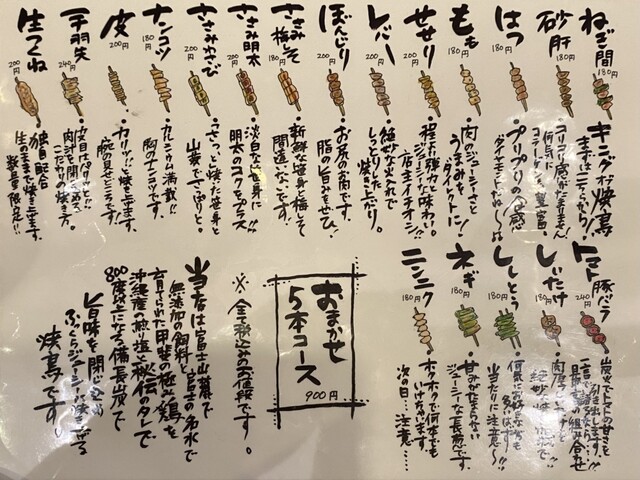 ねぎ間
180円
キングオブ焼鳥
まずはこれから!
砂肝
200円
コリコリ感がたまりません
何気に
コラーゲン豊富。
はつ
180円
プリプリの食感
もも
180円
肉のジューシーさと
うまみを
ダイレクトに!
せせり
200円
程よい弾力と
ジューシーな味わい。
店主イチオシ!!
レバー
200円
絶妙な火入れで
しっとりした
焼き上がり。
ぼんじり
200円
お尻のお肉です。
脂の旨みをぜひ!
ささみ
梅しそ
180円
新鮮な笹身と梅しそ
間違いない。
ささみ明太
180円
淡白な笹身に
明太のコクをプラス!!
ささみわさび
200円
さっと焼いた笹身と
山葵でさっぱりと。
ナンコツ
180円
カルシウム満載!!
胸のナンコツです。
皮
200円
カリッと焼き上げます。
腕の見せどころです!
手羽先
240円
皮目はパリッと!!
肉汁を閉じ込める
こだわりの焼き方。
生つくね
200円
独自配合
生のままで焼き上げます。
数量限定!!
トマト豚バラ
240円
炭火でトマトの甘さを
引き出します!!
最高の組み合わせ
しいたけ
180円
ししとう
180円
当たりに注意~!!
ネギ
180円
甘みがたまらない
ジューシーな長葱です。
ニンニク
180円
ホクホクで何本でも
いけちゃいます。
次の日…注意…
おまかせ
5本コース
900円
※全て税込みのお値段です。
当店は富士山麓で
無添加の飼料と富士の名水で
育てられた甲斐の極み鶏を
沖縄産の煎塩と秘伝のタレで
800度以上になる備長炭で
旨味を閉じ込め
ふっくらジューシーに焼き上げる
焼鳥です。